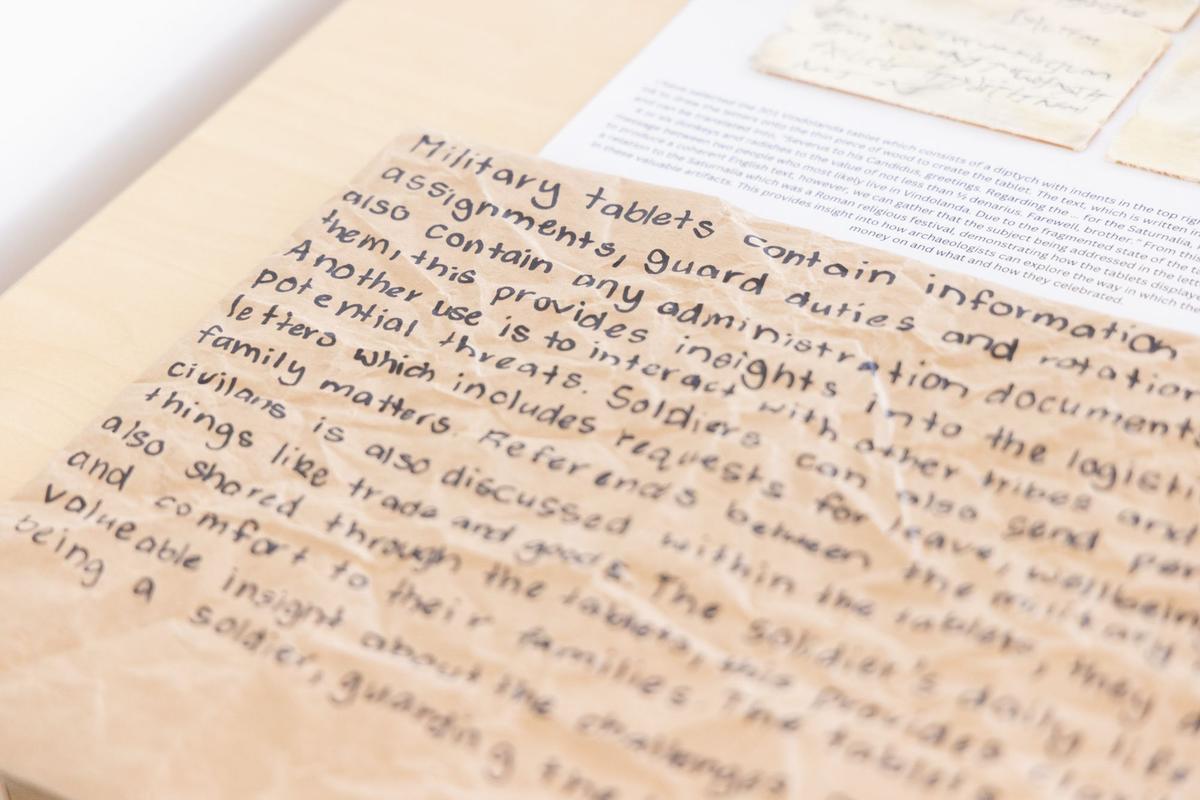 have selected the 301 Vindolanda tablet which consists of a diptych with indents in the top
ink to draw the letters onto the thin piece of wood to create the tablet. The text, which is written
and can be translated into, "Severus to his Candidus, greetings. Regarding the ... for the Saturnalia
or six donkeys and radishes to the value of not less than ½ denarius. Farewell, brother." From
message between two people who most likely live in Vindolanda. Due to the fragmented state of the
to produce a coherent English text, however, we can gather that the subject being addressed in the
relation to the Saturnalia which was a Roman religious festival, demonstrating how the tablets
in these valuable artifacts. This provides insight into how archaeologists can explore the way in which
money on and what and how they celebrated.
Military tablets contain information
assignments, guard duties and rotation
also contain any administration document
them, this provides insights into the logisti
Another use is to interact with other tribes and
potential threats. Soldiers can also send per
letters which includes requests for leave, wellbein
family matters. Referends between the military
civilans is also discussed within the tablets, they
things like trade and goods. The soldier's daily life
also shared through the tablets, this provides
and comfort to their families. The tablet
valueable insight about the challenges
being a soldier, guarding the